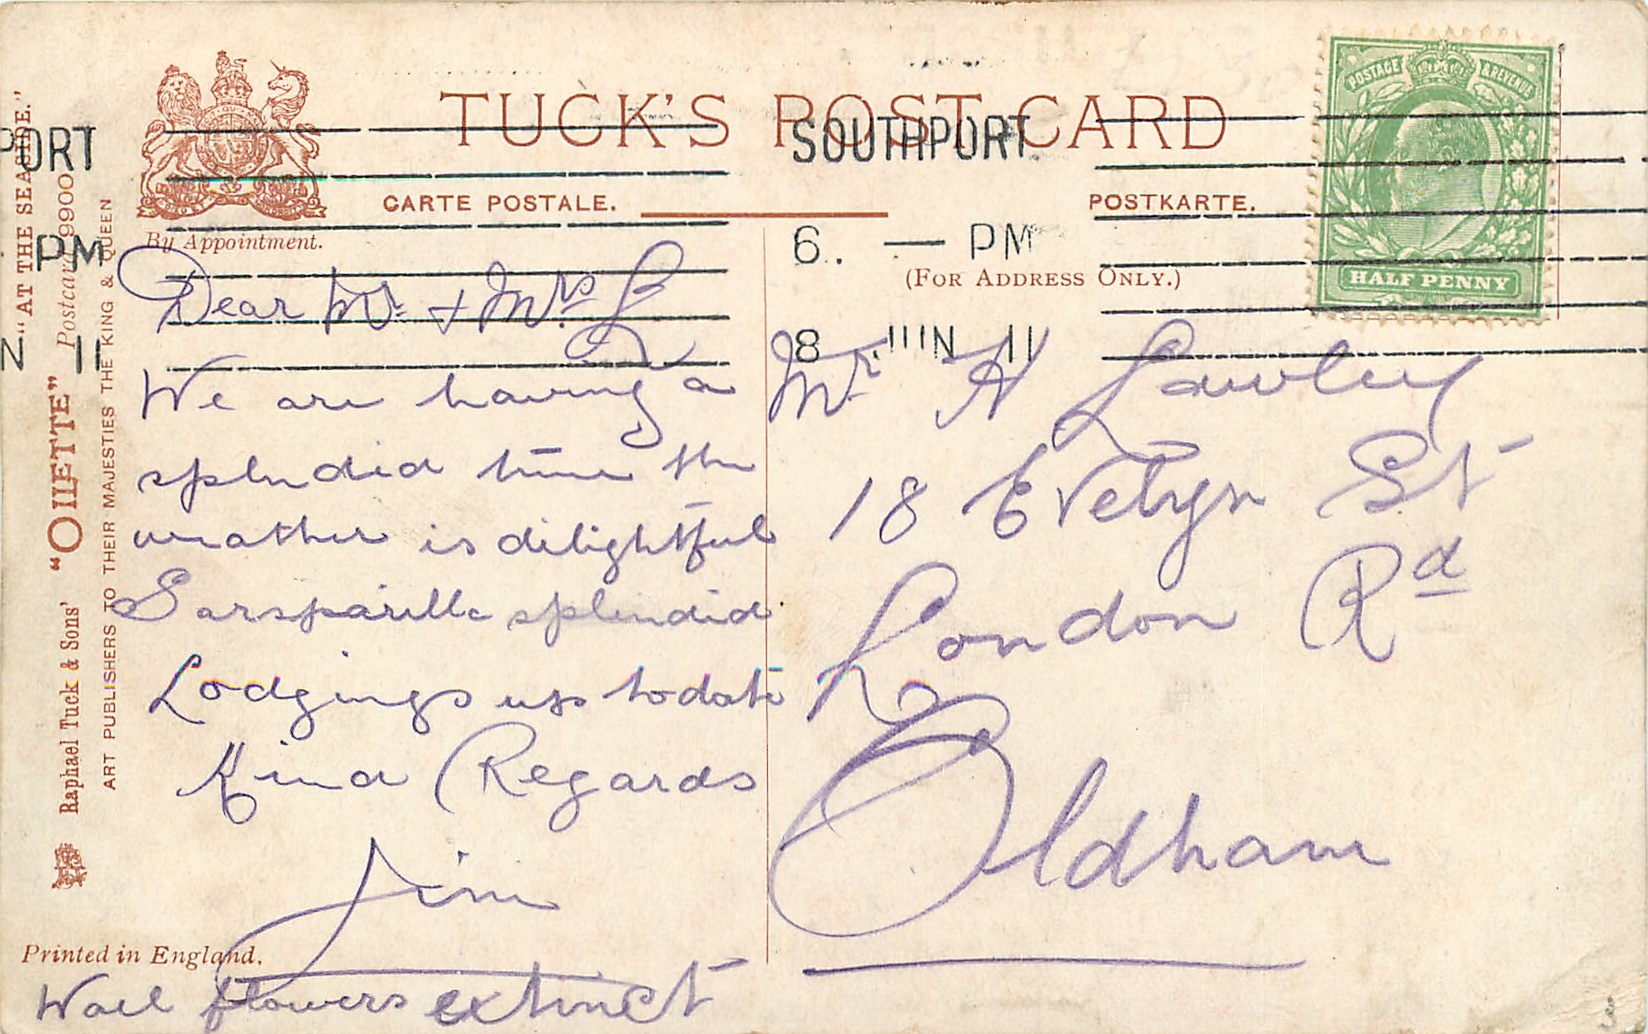 TUCK'S POST CARD
CARTE POSTALE.
POSTKARTE.
By Appointment.
(FOR ADDRESS ONLY.)
POSTAGE & REVENUE
HALF PENNY
SOUTHPORT
6. — PM
8 JUN 11
PORT
PM
N 11
"AT THE SEASIDE."
Postcard 9900
Raphael Tuck & Sons' "OILETTE"
ART PUBLISHERS TO THEIR MAJESTIES THE KING & QUEEN
Dear Mr. & Mrs. L
We are having a
splendid time the
weather is delightful
Sarsparilla splendid
Lodgings up to date
Kind Regards
Jim
Wall flowers extinct
Mr H Lawley
18 Evelyn St
London Rd
Oldham
Printed in England.